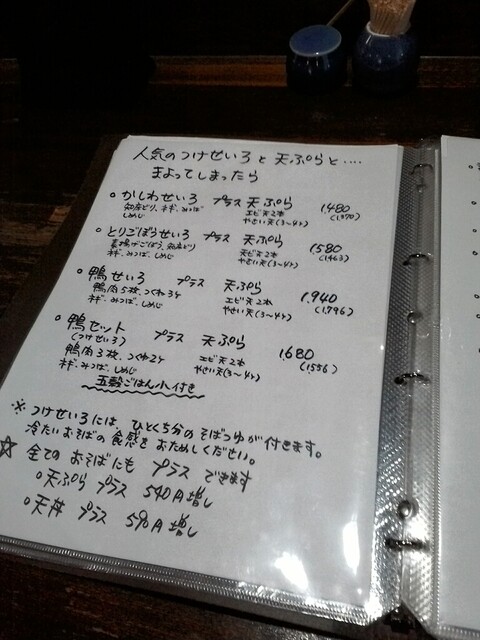 人気のつけせいろと天ぷらと....
まよってしまったら
○ かしわせいろ プラス 天ぷら 1,480
知床どり、ネギ、みつば エビ天2本 (1,370)
しめじ やさい天(3～4ヶ)
○ とりごぼうせいろ プラス 天ぷら 1580
ごぼう、知床どり エビ天2本 (1,463)
ネギ、みつば、しめじ やさい天(3～4ヶ)
○ 鴨せいろ プラス 天ぷら 1,940
鴨肉5枚、つくね3ヶ エビ天2本 (1,796)
ネギ、みつば、しめじ やさい天(3～4ヶ)
○ 鴨セット プラス 天ぷら 1,680
(つけせいろ) (1,556)
鴨肉3枚、つくね2ヶ エビ天2本
ネギ、みつば、しめじ やさい天(3～4ヶ)
五穀ごはん小付き
※ つけせいろには ひとくち分のそばつゆが付きます。
冷たいおそばの食感をおためしください。
☆ 全ての おそばにも プラス できます
○ 天ぷら プラス 540円増し
○ 天丼 プラス 590円増し